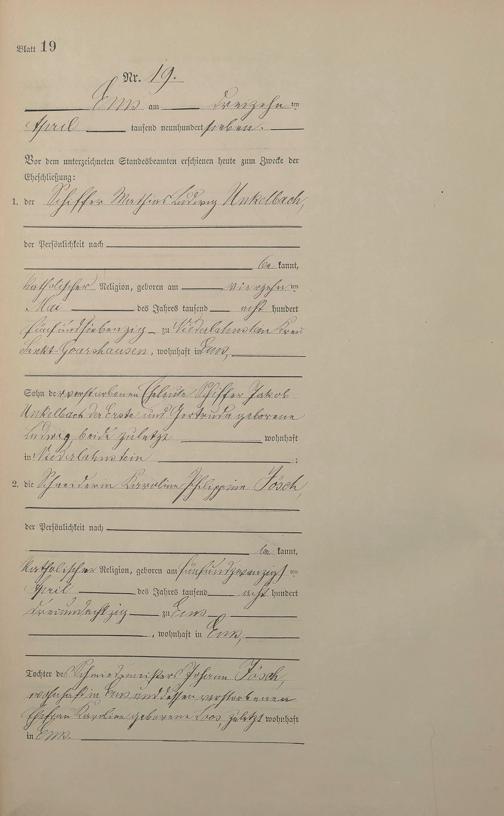 Blatt 19
Nr. 19.
Ems am dreizehnten
April tausend neunhundert sieben.
Vor dem unterzeichneten Standesbeamten erschienen heute zum Zwecke der
Eheschließung:
1. der Schiffer Mathias Ludwig Unkelbach,
der Persönlichkeit nach
be kannt,
katholischer Religion, geboren am vierzehnten
Mai des Jahres tausend acht hundert
fünfundsiebenzig zu Niederlahnstein Kreis
Sankt Goarshausen, wohnhaft in Ems,
Sohn der verstorbenen Eheleute Schiffer Jakob
Unkelbach der Erste und Gertrude geborene
Ludwig, beide zuletzt wohnhaft
in Niederlahnstein ;
2. die Schneiderin Karoline Philippine Jösch,
der Persönlichkeit nach
be kannt,
katholischer Religion, geboren am fünfundzwanzigsten
April des Jahres tausend acht hundert
dreiundachtzig zu Ems
, wohnhaft in Ems,
Tochter des Johann Jösch,
wohnhaft in Ems und dessen verstorbenen
Ehefrau Karoline geborene Loos, zuletzt wohnhaft
in Ems.